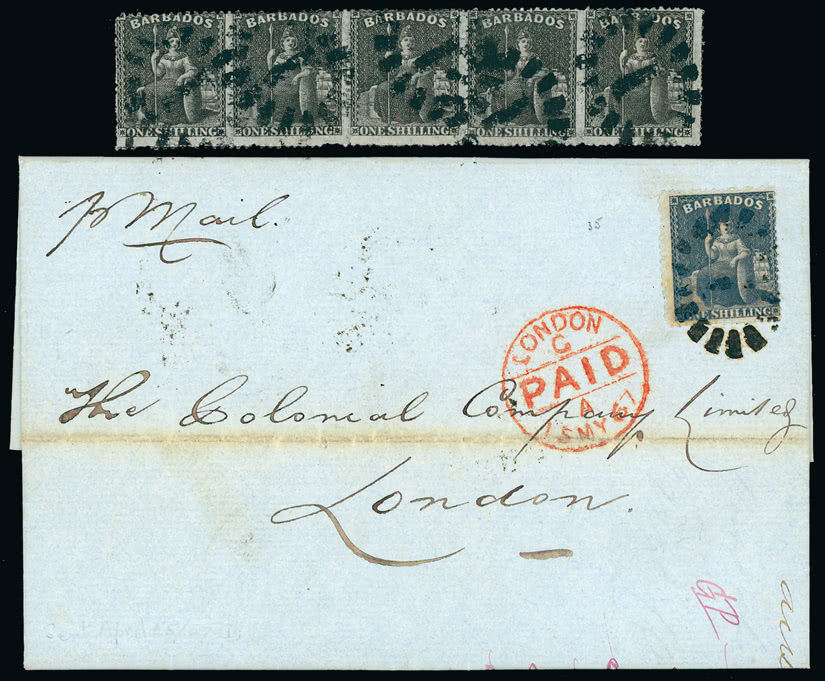 BARBADOS BARBADOS BARBADOS BARBADOS BARBADOS
ONE SHILLING ONE SHILLING ONE SHILLING ONE SHILLING ONE SHILLING
p Mail.
35
BARBADOS
ONE SHILLING
LONDON
G
PAID
4
MY 67
The Colonial Company Limited
London.